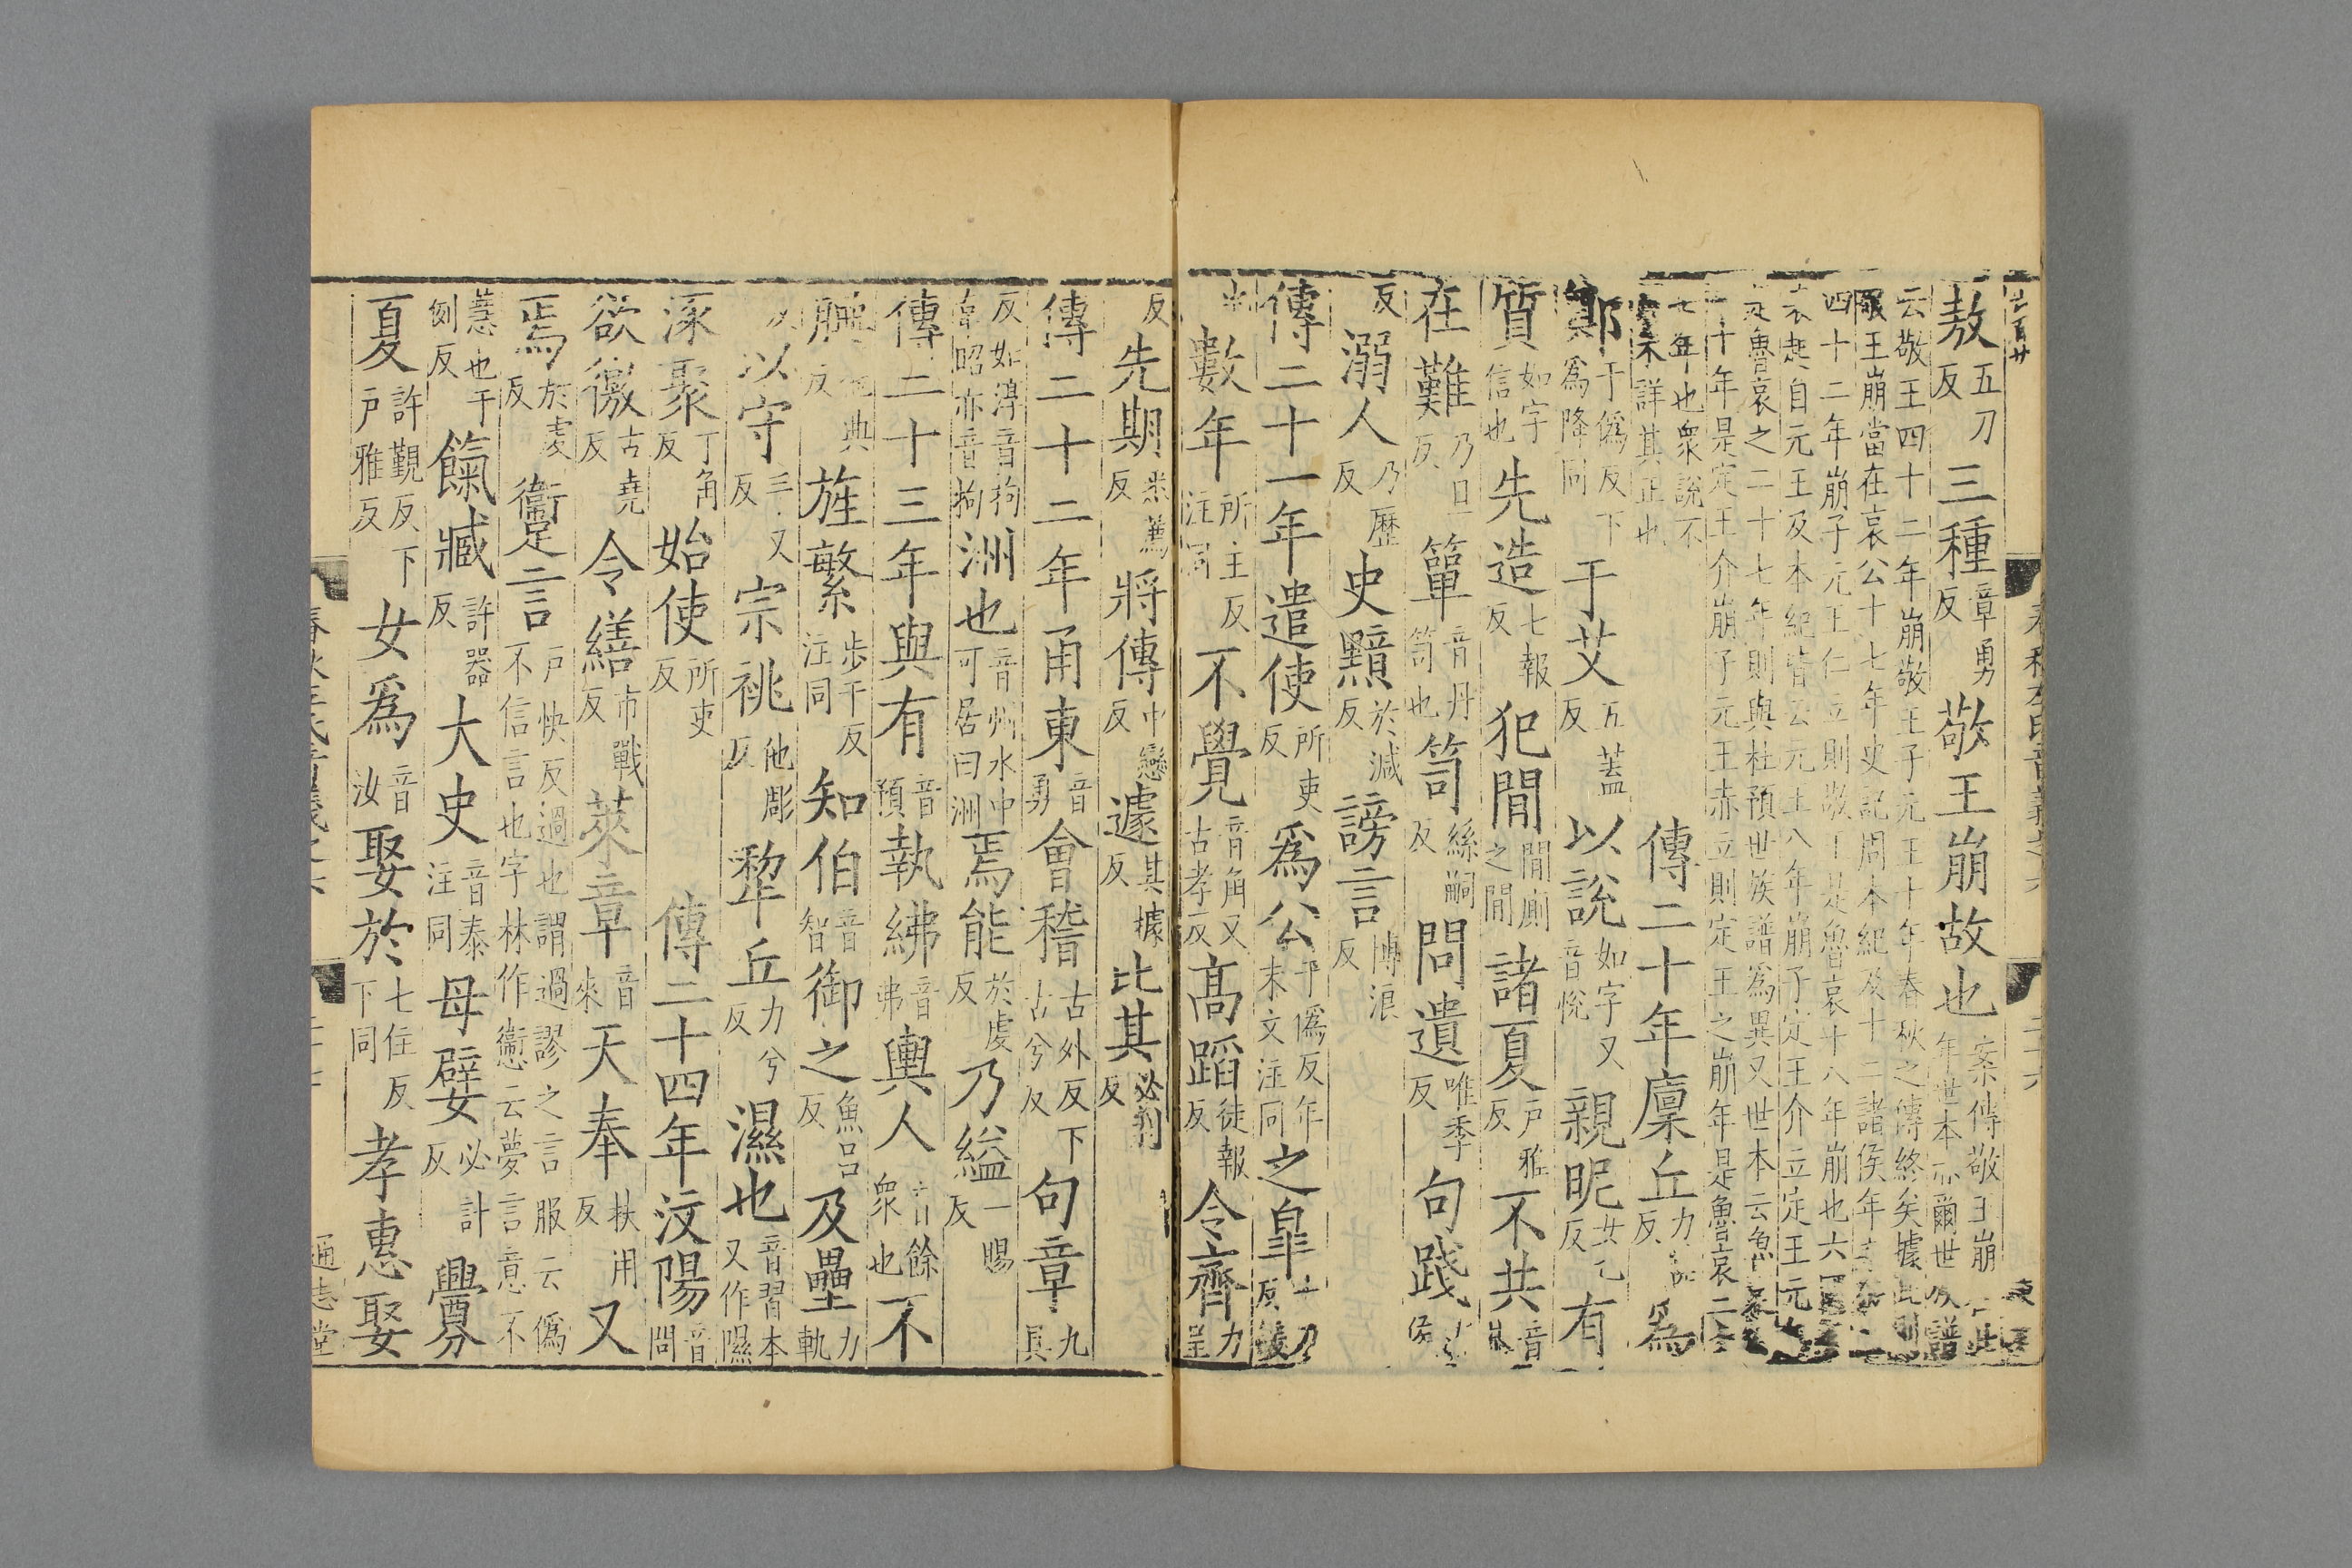 敖五刀反三種章勇反敬王崩故也案傳敬王崩
年世本亦爾世族譜
云敬王四十二年崩敬王子元王十年春秋之傳終矣據此則
敬王崩當在哀公十七年史記周本紀及十二諸侯年表
四十二年崩子元王仁立則敬王是魯哀十八年崩也六
表起自元王及本紀皆云元王八年崩子定王介立定王元
是魯哀之二十七年則與杜預世族譜爲異又世本云魯
二十年是定王介崩子元王赤立則定王之崩年是魯哀二十
七年也衆說不
未詳其正也
傳二十年廩丘力甚反爲
鄭于僞反下爲降同于艾五蓋反以說如字又音悅親昵女乙反有
質如字信也先造七報反犯間間廁之間諸夏戶雅反不共音恭
在難乃旦反簞音丹笥也笥絲嗣反問遺唯季反句踐
反溺人乃歷反史黯於減反謗言博浪反
傳二十一年遣使所吏反爲公于僞反年末文注同之皐
數年所主反注同不覺音角又古孝反高蹈徒報反令齊力呈
反先期悉薦反將傳中戀反遽其據反比其必利反
傳二十二年甬東音勇會稽古外反下古兮反句章九具
反如淳音拘韋昭亦音拘洲也音州水中可居曰洲焉能於虔反乃縊一賜反
傳二十三年與有音預執紼音弗輿人音餘衆也不
腆他典反旌繁步干反注同知伯音智御之魚呂反及壘力軌
反以守手又反宗祧他彫反犂丘力兮反濕也音習本又作隰
涿聚丁角反始使所吏反傳二十四年汶陽音問
欲徼古堯反令繕市戰反萊章音來天奉扶用反又
焉於虔反躗言戶快反過也謂過謬之言服云僞不信言也字林作㦣云夢言意不
慧也于例反餼臧許器反大史音泰注同母嬖必計反釁
夏許覲反下戶雅反女爲音汝娶於七住反下同孝惠娶
通志堂